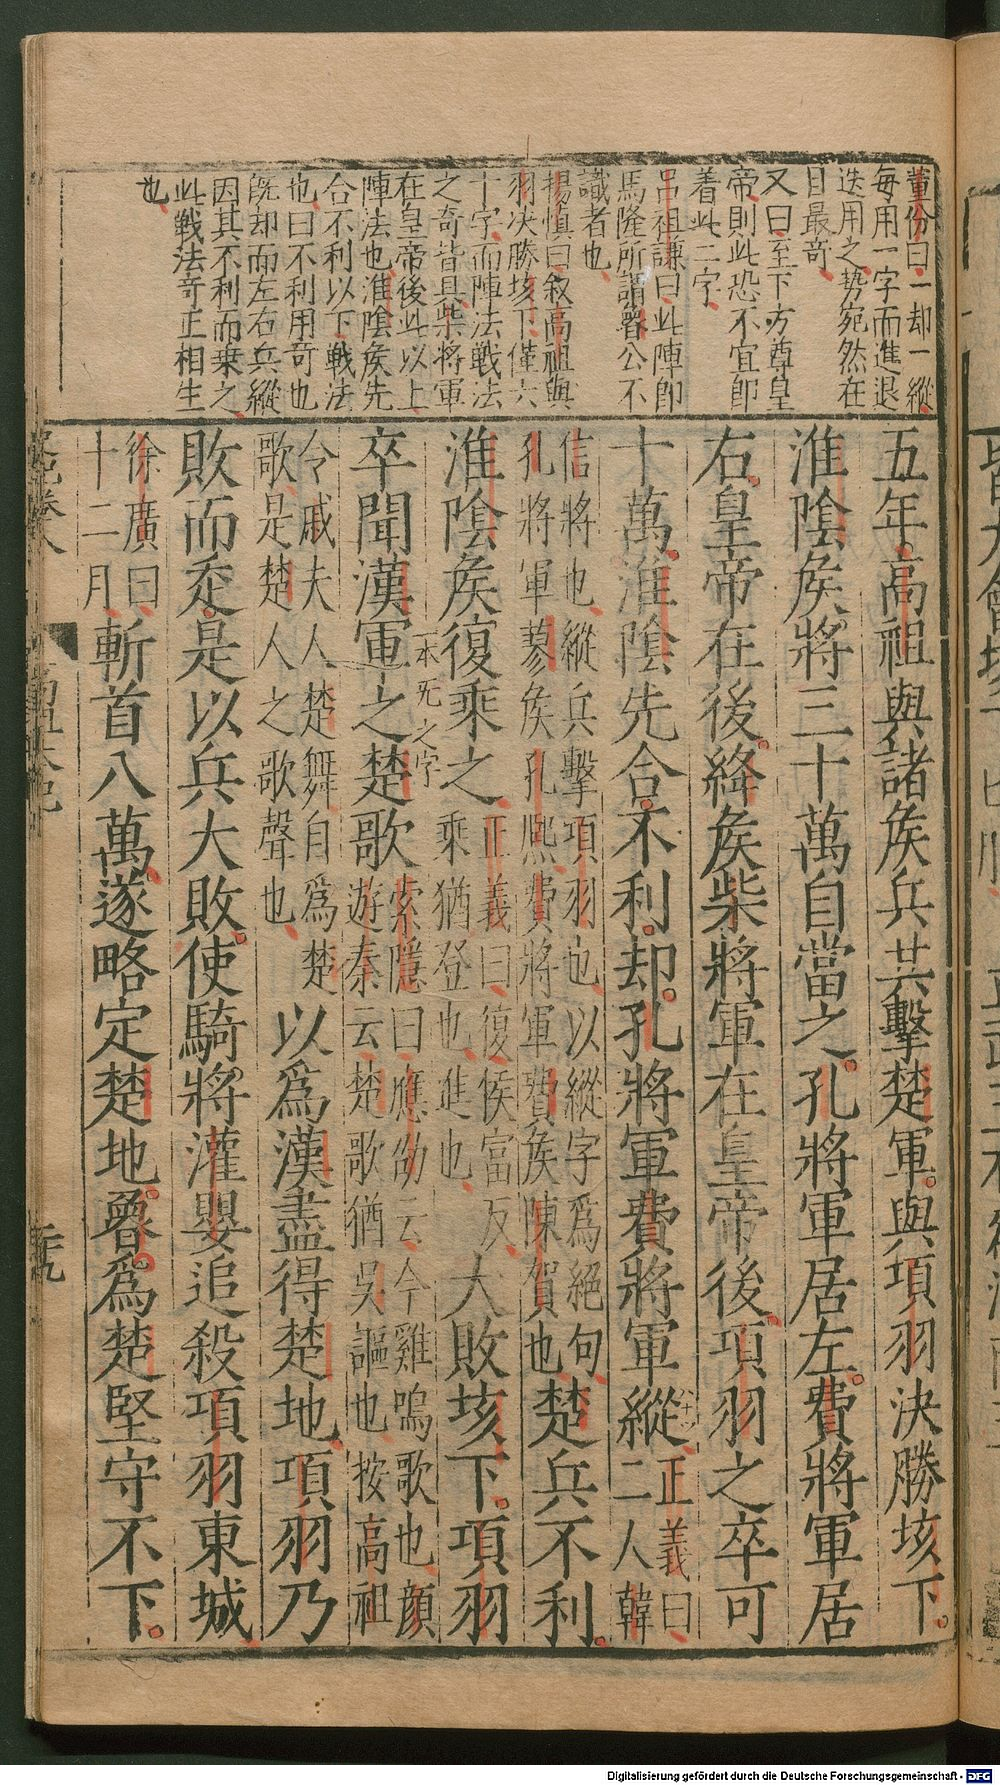 董份曰一却一縱
每用一字而進退
迭用之勢宛然在
目最奇
又曰至下方尊皇
帝則此恐不宜即
着此二字
呂祖謙曰此陣即
馬隆所謂魯公不
識者也
楊慎曰叙高祖與
羽决勝垓下僅六
十字而陣法戰法
之奇皆具柴將軍
在皇帝後此以上
陣法也淮陰矦先
合不利以下戰法
也曰不利用奇也
旣却而左右兵縱
因其不利而乗之
此戰法竒正相生
也
五年高祖與諸矦兵共擊楚軍與項羽決勝垓下
淮陰矦將三十萬自當之孔將軍居左費將軍居
右皇帝在後絳矦柴將軍在皇帝後項羽之卒可
十萬淮陰先合不利却孔將軍費將軍縱正義曰二人韓
信將也縱兵擊項羽也以縱字爲絕句
孔將軍蓼矦孔熙費將軍費矦陳賀也楚兵不利
淮陰矦復乘之正義曰復侯富反乘猶登也進也大敗垓下項羽
卒聞漢軍之楚歌一本旡之字索隱曰應劭云今雞鳴歌也顏遊秦云楚歌猶吳謳也按高祖
令戚夫人楚舞自爲楚歌是楚人之歌聲也以爲漢盡得楚地項羽乃
敗而走是以兵大敗使騎將灌嬰追殺項羽東城
徐廣曰十二月斬首八萬遂略定楚地魯爲楚堅守不下
高祖本紀
Digitalisierung gefördert durch die Deutsche Forschungsgemeinschaft - DFG